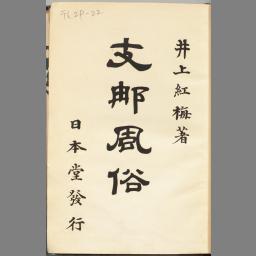 井上紅梅著
支那風俗
日本堂發行